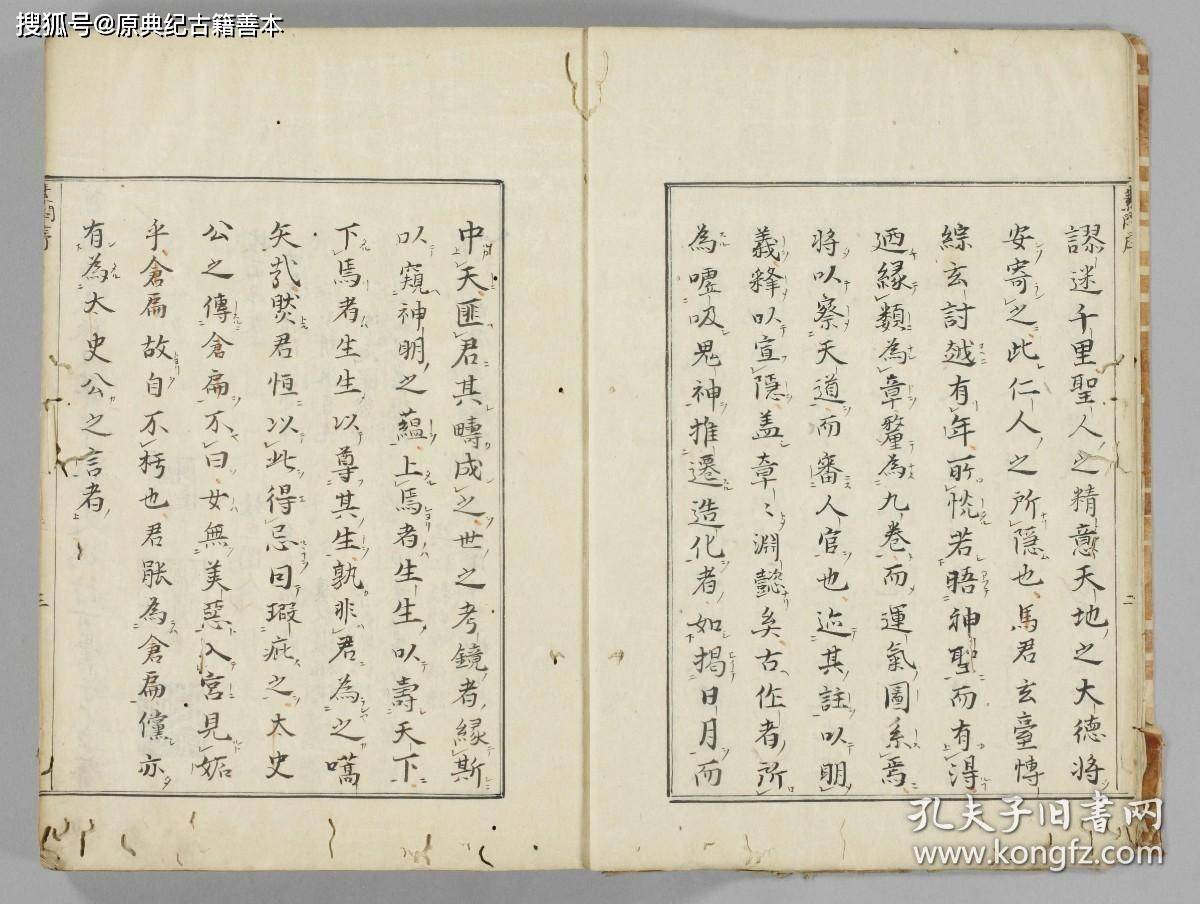 搜狐号@原典纪古籍善本
謬迷千里聖人之精意天地之大德將
安寄之此仁人之所隱也馬君玄臺慱
綜玄討越有年所恍若晤神聖而有得
迺緣類為章釐為九卷而運氣圖系焉
將以察天道而審人官也迹其註以明
義釋以宣隱盖章〻淵懿矣古作者所
為嘘吸鬼神推遷造化者如揭日月而
二
中天匪君其疇成之世之考鏡者緣斯
以窺神明之蘊上焉者生生以壽天下
下焉者生生以尊其生孰非君為之嚆
矢哉慭君恒以此得忌曰瑕疵之太史
公之傳倉扁不曰女無美惡入宮見妬
乎倉扁故自不朽也君能為倉扁儻亦
有為太史公之言者
三
孔夫子旧书网
www.kongfz.com